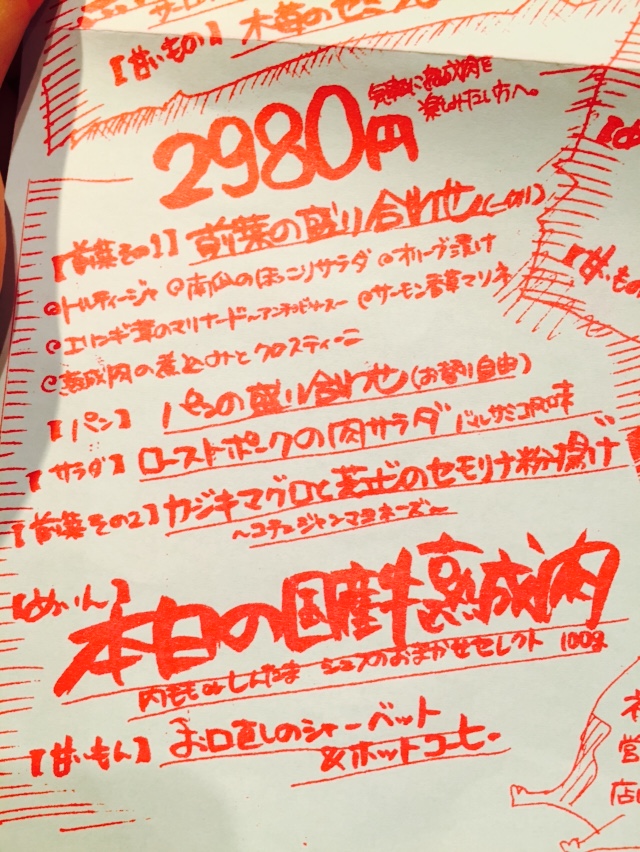 【甘いもの】
2980円
気軽に熟成肉を
楽しみたい方へ。
【前菜その1】前菜の盛り合わせ
@トルティージャ @南瓜のほっこりサラダ @オリーブ漬け
@エリンギ茸のマリナード @サーモン香草マリネ
@熟成肉の煮込みとクロスティーニ
【パン】パンの盛り合わせ(お替り自由)
【サラダ】ローストポークの肉サラダ バルサミコ風味
【前菜その2】カジキマグロと芝エビのセモリナ粉揚げ
~コチュジャンマヨネーズ~
【めいん】
本日の国産牛熟成肉
内ももorしんたま シェフのおまかせセレクト 100g
【甘いもん】お口直しのシャーベット
&ホットコーヒー